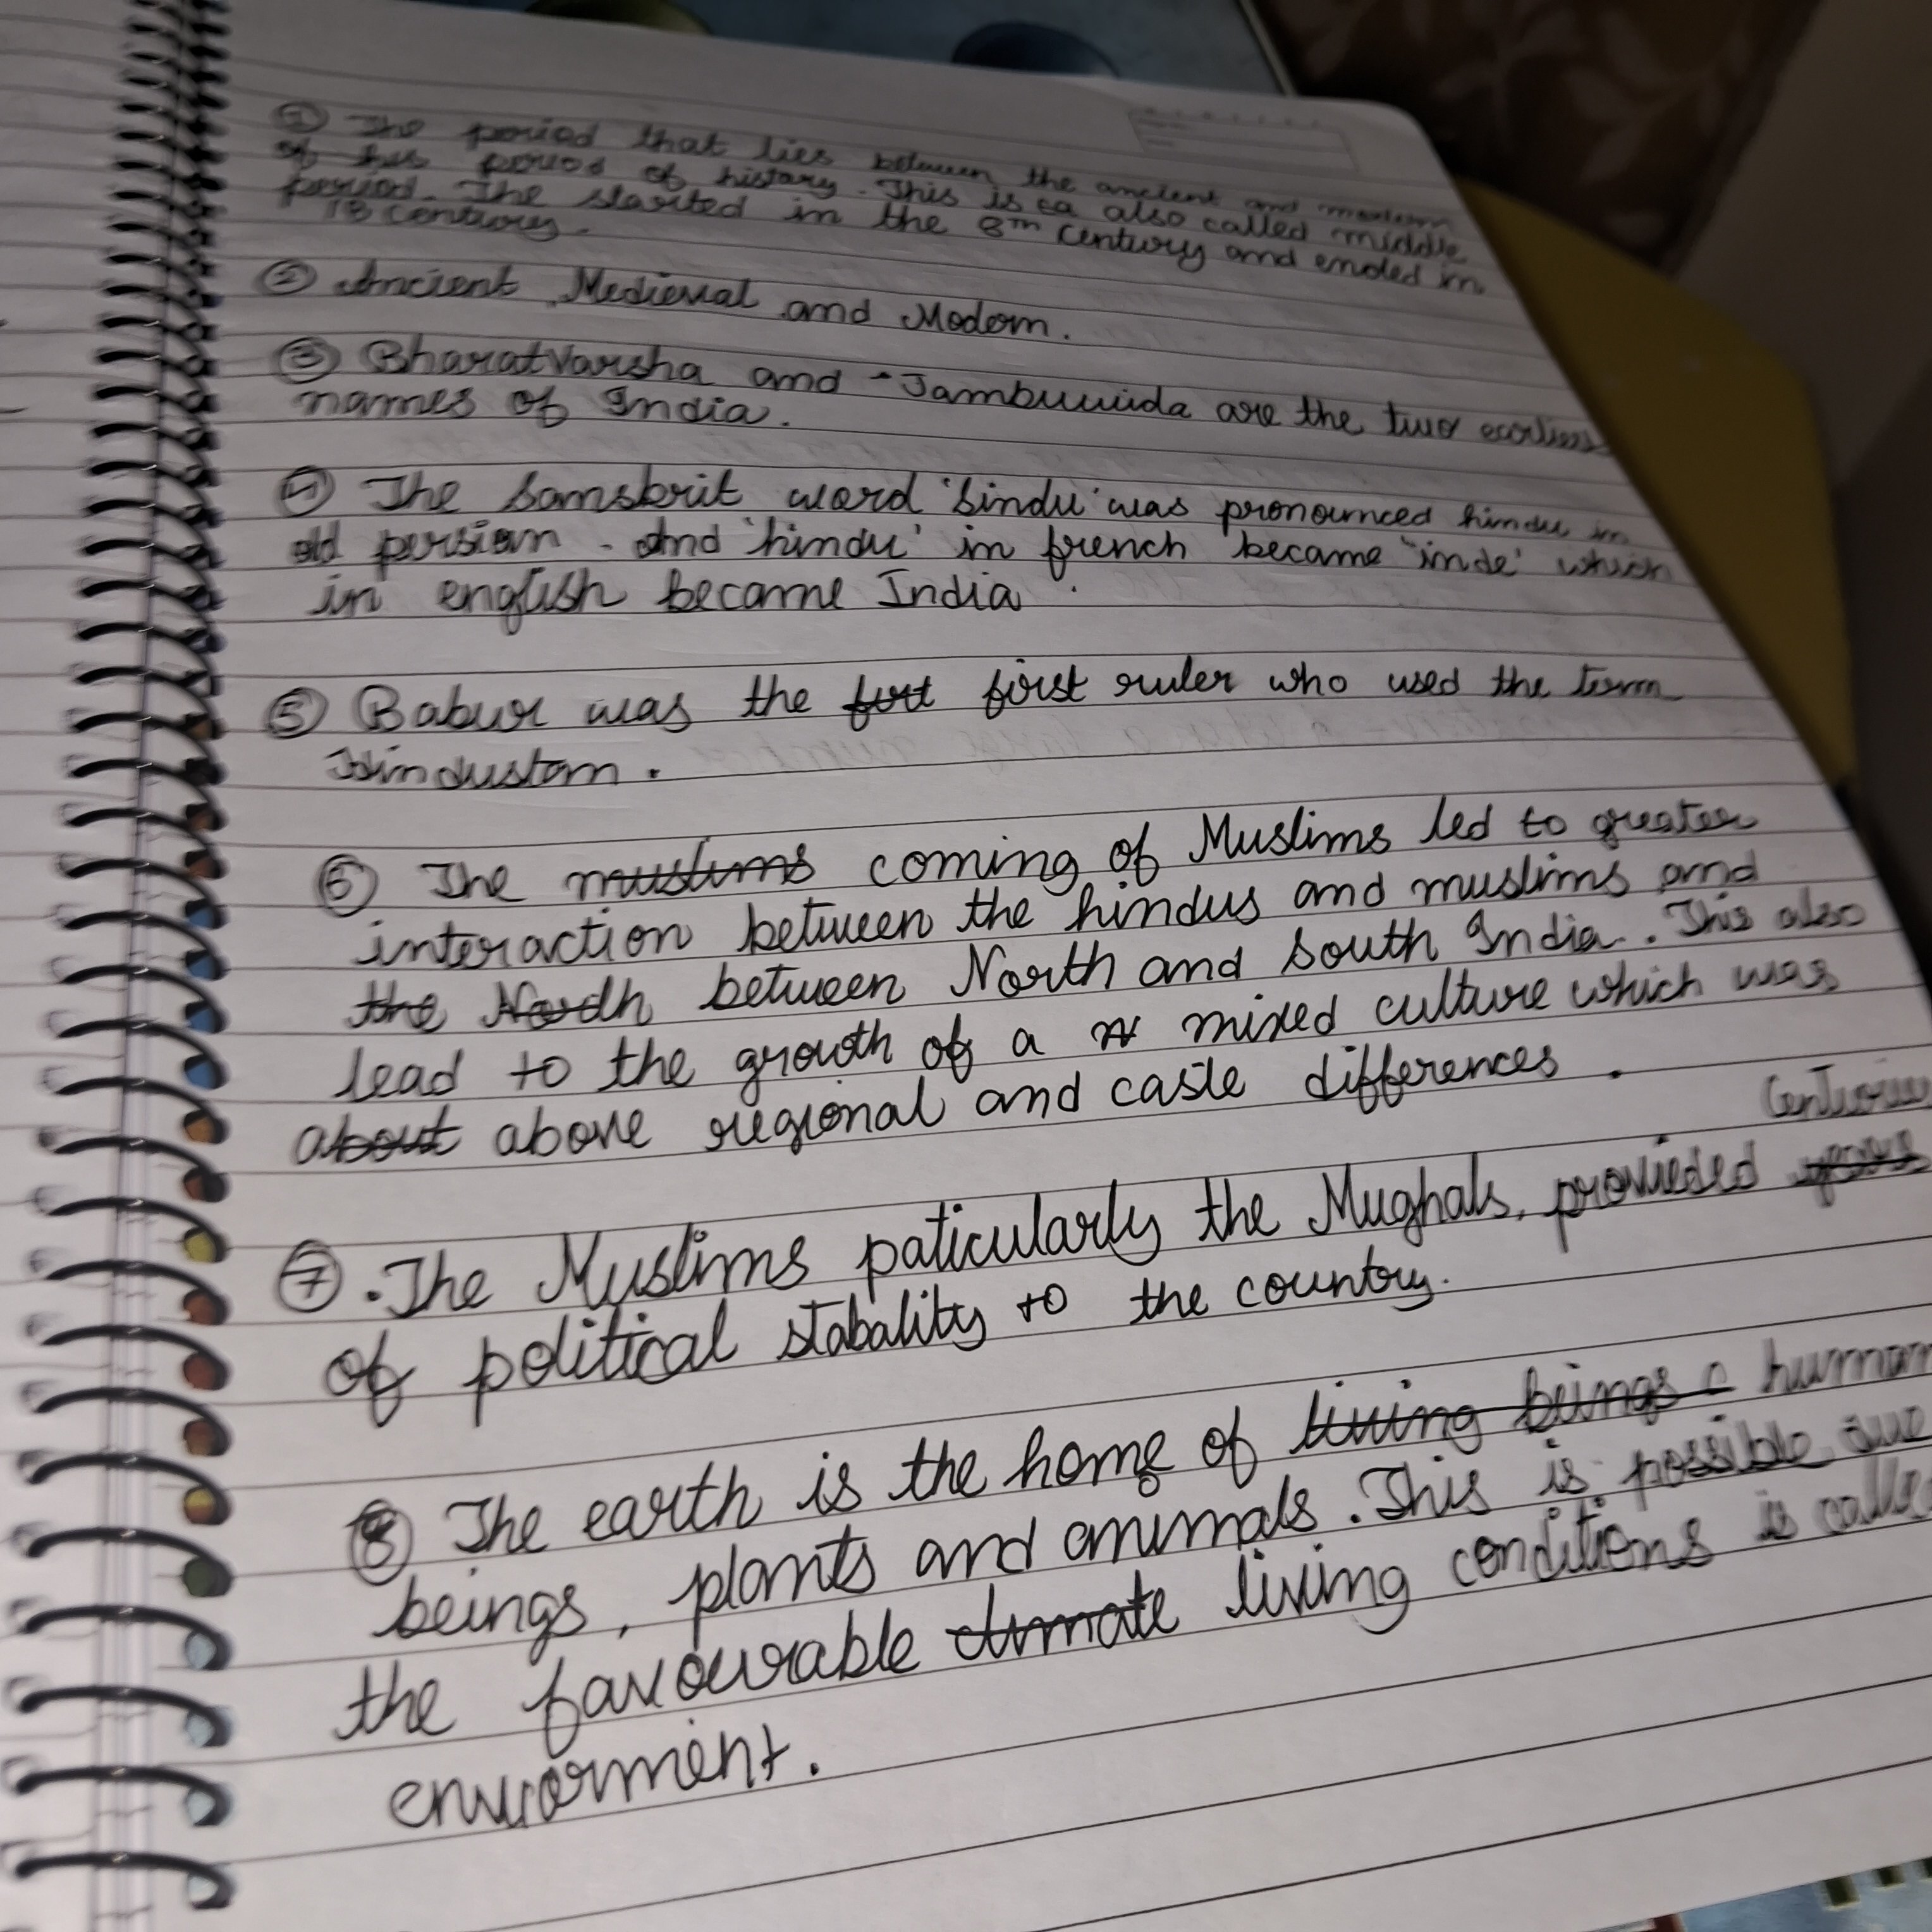 ① The period that lies between the ancient and modern
of this period of history. This is ca also called middle
period. The started in the 8th century and ended in
18 century.
② Ancient, Medieval and Modern.
③ BharatVarsha and Jambuvida are the two earliest
names of India.
④ The Sanskrit word 'Sindu' was pronounced hindu in
old persian. And 'hindu' in french became 'inde' which
in english became India.
⑤ Babur was the furt first ruler who used the term
Hindustan.
⑥ The muslims coming of Muslims led to greater
interaction between the hindus and muslims and
the Nordh between North and South India. This also
lead to the growth of a mixed culture which was
about above regional and caste differences.
Centuries
⑦ . The Muslims paticularly the Mughals, provieded years
of political stabality to the country.
⑧ The earth is the home of living beings human
beings, plants and animals. This is possible due
the favourable climate living conditions is called
enviorment.